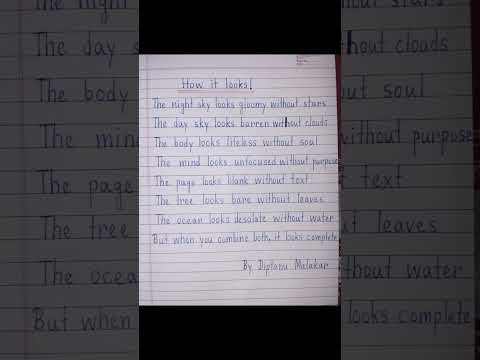 How it looks!
The night sky looks gloomy without stars
The day sky looks barren without clouds
The body looks lifeless without soul
The mind looks unfocused without purpose
The page looks blank without text
The tree looks bare without leaves
The ocean looks desolate without water
But when you combine both, it looks complete
By Diptanu Malakar